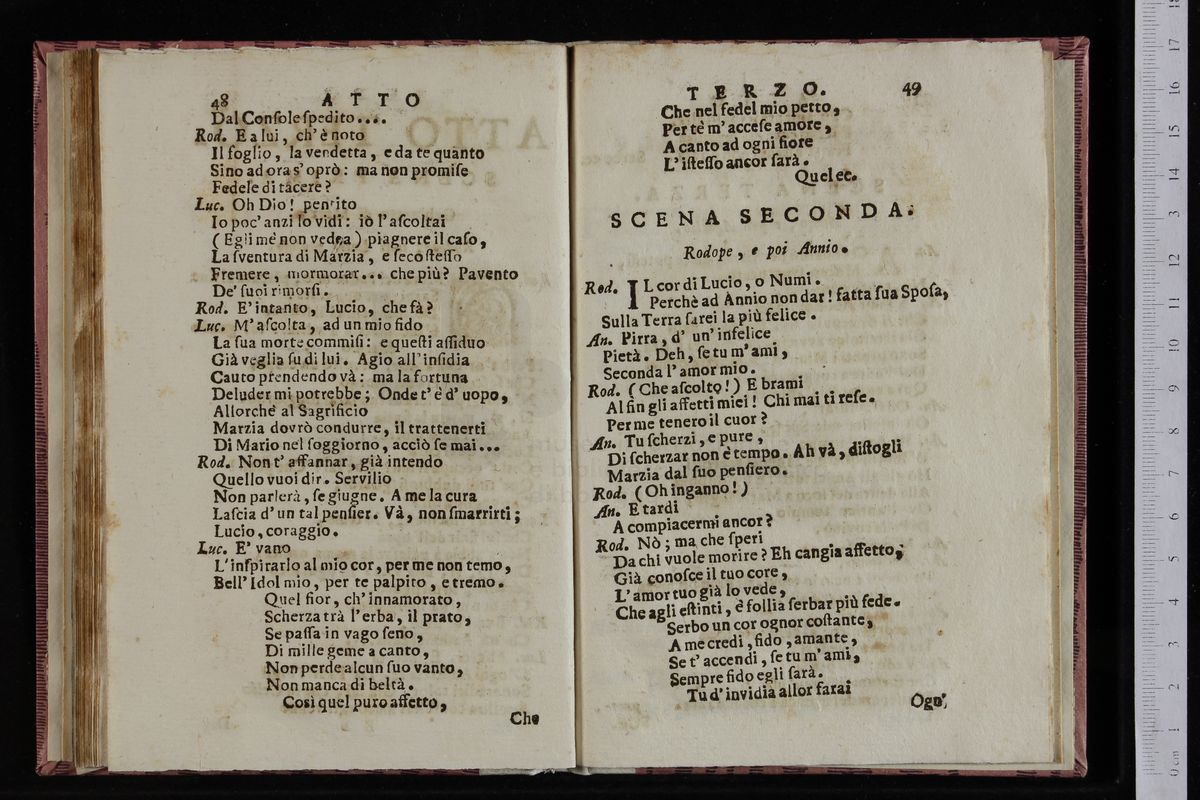 48 ATTO
Dal Conſole ſpedito....
Rod. E a lui, ch'è noto
Il foglio, la vendetta, e da te quanto
Sino ad ora s'oprò: ma non promiſe
Fedele di tacere?
Luc. Oh Dio! pentito
Io poc'anzi lo vidi: iò l'aſcoltai
(Egli mè non vedea) piagnere il caſo,
La ſventura di Marzia, e ſeco ſteſſo
Fremere, mormorar... che più? Pavento
De' ſuoi rimorſi.
Rod. E'intanto, Lucio, che fà?
Luc. M'aſcolta, ad un mio fido
La ſua morte commiſi: e queſti aſſiduo
Già veglia ſu di lui. Agio all'inſidia
Cauto prendendo và: ma la fortuna
Deluder mi potrebbe; Onde t'è d'uopo,
Allorchè al Sagrificio
Marzia dovrò condurre, il trattenerti
Di Mario nel ſoggiorno, acciò ſe mai...
Rod. Non t'affannar, già intendo
Quello vuoi dir. Servilio
Non parlerà, ſe giugne. A me la cura
Laſcia d'un tal penſier. Và, non ſmarrirti;
Lucio, coraggio.
Luc. E' vano
L'inſpirarlo al mio cor, per me non temo,
Bell'Idol mio, per te palpito, e tremo.
Quel fior, ch'innamorato,
Scherza trà l'erba, il prato,
Se paſſa in vago ſeno,
Di mille geme a canto,
Non perde alcun ſuo vanto,
Non manca di beltà.
Così quel puro affetto,
Che
TERZO. 49
Che nel fedel mio petto,
Per tè m'acceſe amore,
A canto ad ogni fiore
L'iſteſſo ancor ſarà.
Quel ec.
SCENA SECONDA.
Rodope, e poi Annio.
Rod. IL cor di Lucio, o Numi.
Perchè ad Annio non dar! fatta ſua Spoſa,
Sulla Terra ſarei la più felice.
An. Pirra, d'un'infelice
Pietà. Deh, ſe tu m'ami,
Seconda l'amor mio.
Rod. (Che aſcolto!) E brami
Al fin gli affetti miei! Chi mai ti reſe
Per me tenero il cuor?
An. Tu ſcherzi, e pure,
Di ſcherzar non è tempo. Ah và, diſtogli
Marzia dal ſuo penſiero.
Rod. (Oh inganno!)
An. E tardi
A compiacermi ancor?
Rod. Nò; ma che ſperi
Da chi vuole morire? Eh cangia affetto,
Già conoſce il tuo core,
L'amor tuo già lo vede,
Che agli eſtinti, è follia ſerbar più fede.
Serbo un cor ognor coſtante,
A me credi, fido, amante,
Se t'accendi, ſe tu m'ami,
Sempre fido egli ſarà.
Tu d'invidia allor farai
Ogn'